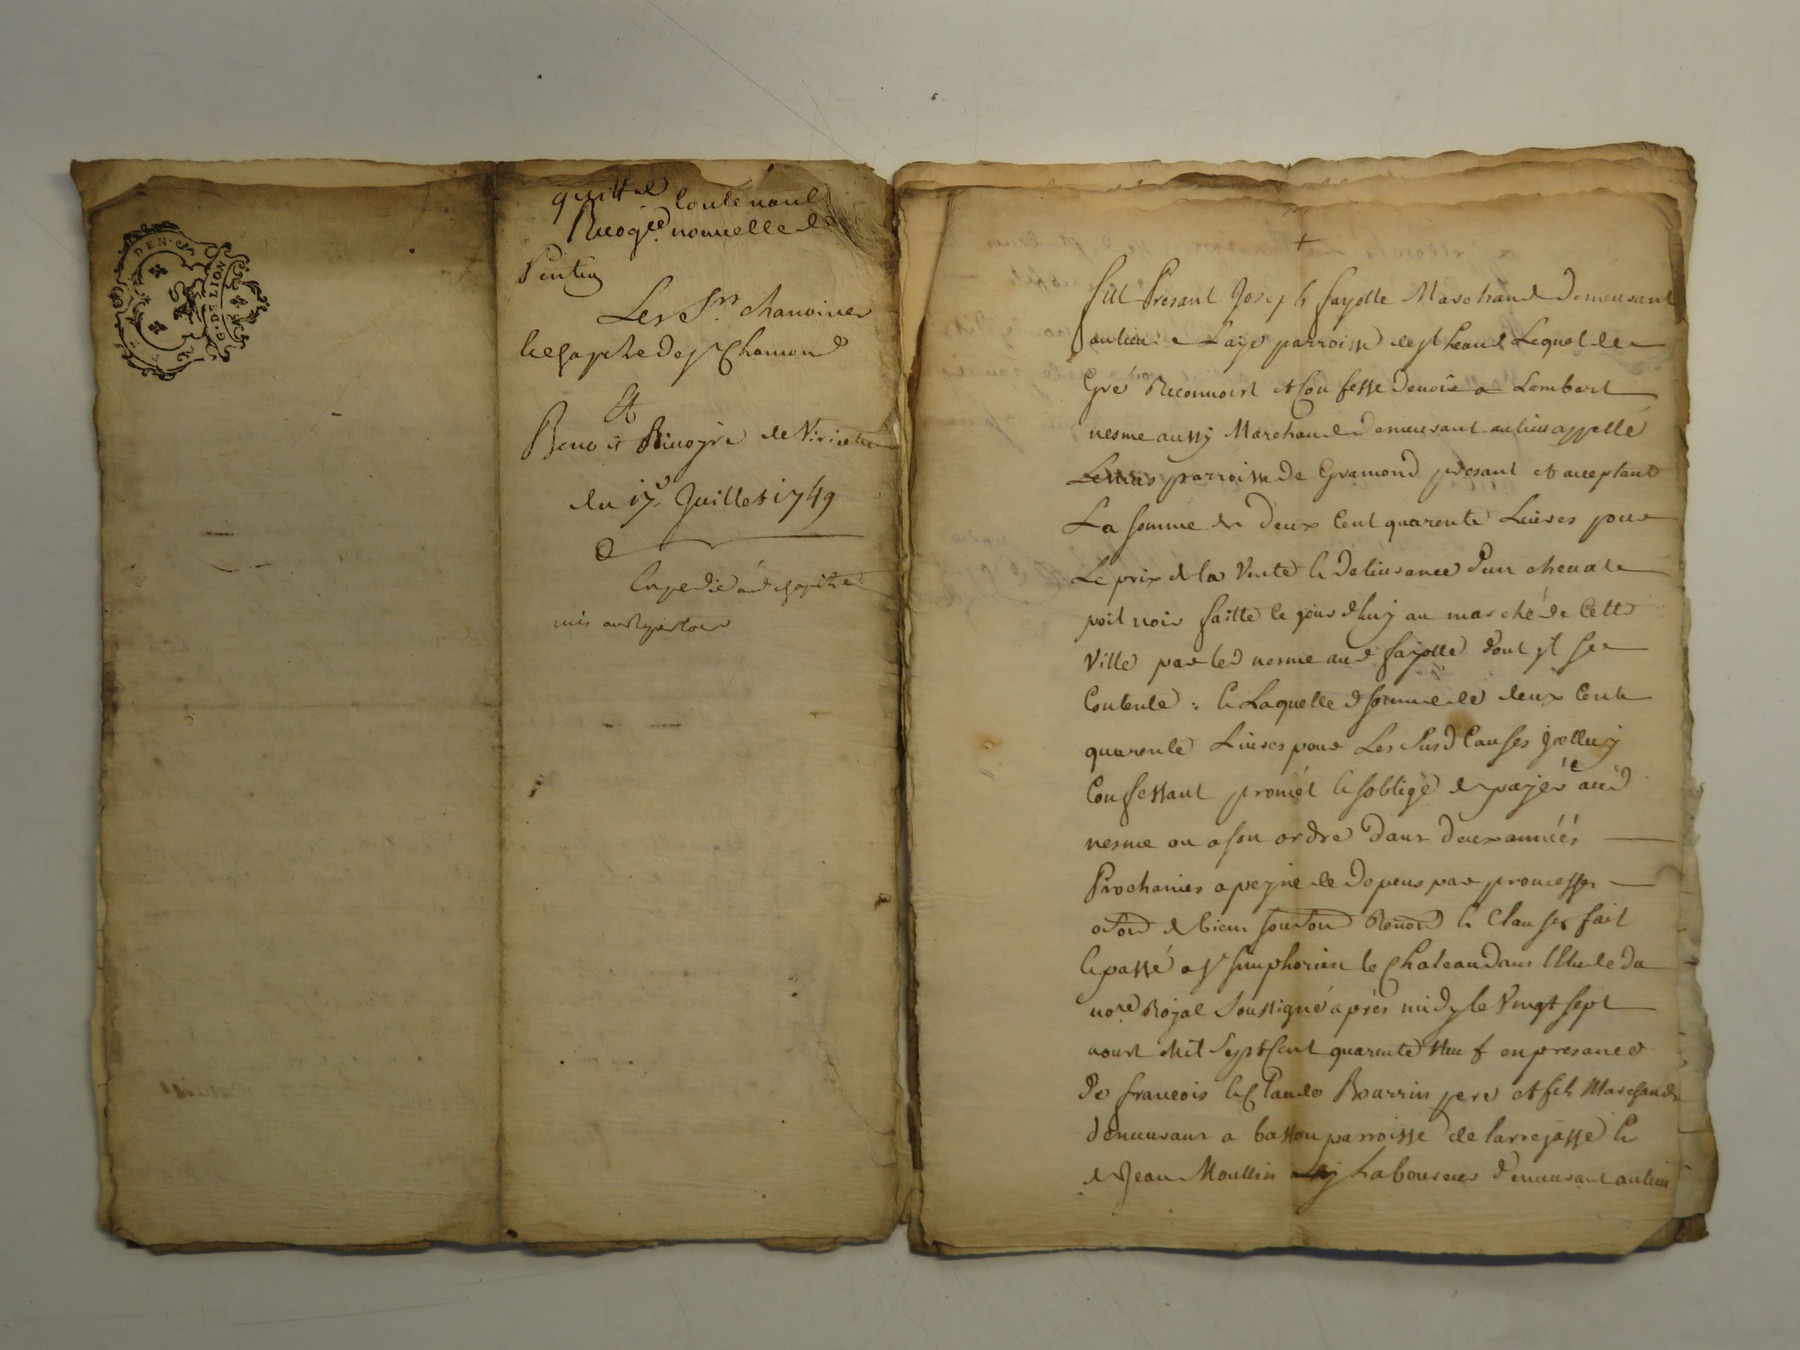 DEN.
G.D.LION
quitt.ce Contenant
Recog.ce nouvelle de
Pention
Les S.rs chanoines
Et chapitre de st Chamond
Et
Benoit de Viricelle
du 17.e Juillet 1749
Expedié aud chapitre
mis au Repertoire
+
fut Presant Joseph fayolle Marchand demeurant
au lieu de Laye parroisse de st Lequel de
Gré Reconnoist et Confesse devoir a Lembert
nesme aussy Marchand demeurant au lieu appellé
parroisse de Gramond presant et acceptant
La somme de deux Cent quarente Livres pour
Le prix de la Vente & delivrance d'un cheval
poil noir faitte ce jourdhuy au marché de Cette
Ville par led nesme aud fayolle dont jl se
Contente : & Laquelle d somme de deux Cent
quarente Livres pour Les Susd Causes jcelluy
Confessant promet & soblige de payér aud
nesme ou a son ordre dans deux années
Prochaines a peyne de depens par promesses
de biens Renon & Clauses fait
& passé a st simphorien le Chateau dans lEtude du
no.re Royal Soussigné après midy le Vingt sept
aoust Mil Sept Cent quarente Neuf en presance
de francois & Claude Bourrin pere et fils Marchands
demeurans a parroisse de larrejasse &
de Jean Moullin Laboureur demeurant au lieu